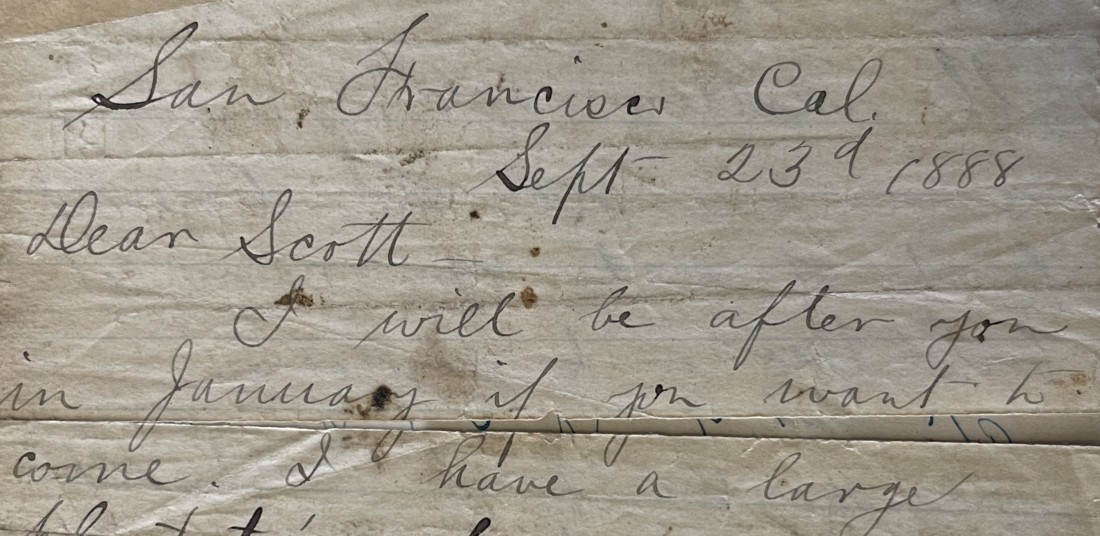 San Francisco Cal.
Sept 23d 1888
Dear Scott —
I will be after you
in January if you want to
come. I have a large